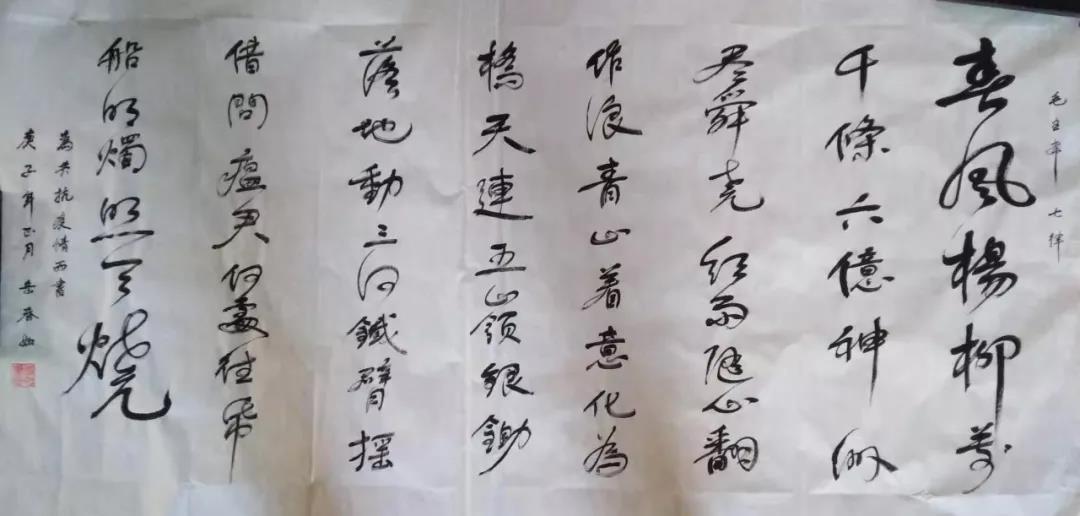 毛主席 七律
春風楊柳萬
千條六億神州
尽舜尧红雨随心翻
作浪青山着意化為
橋天連五嶺銀鋤
落地動三河鐵臂摇
借問瘟君何處往紙
船明燭照天燒
為共抗疫情而書
庚子年正月 岳春